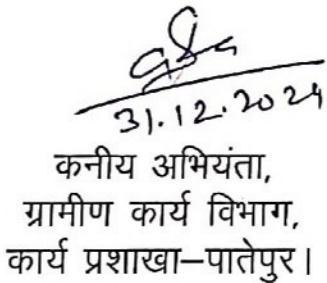 31.12.2024
कनीय अभियंता,
ग्रामीण कार्य विभाग,
कार्य प्रशाखा–पातेपुर।